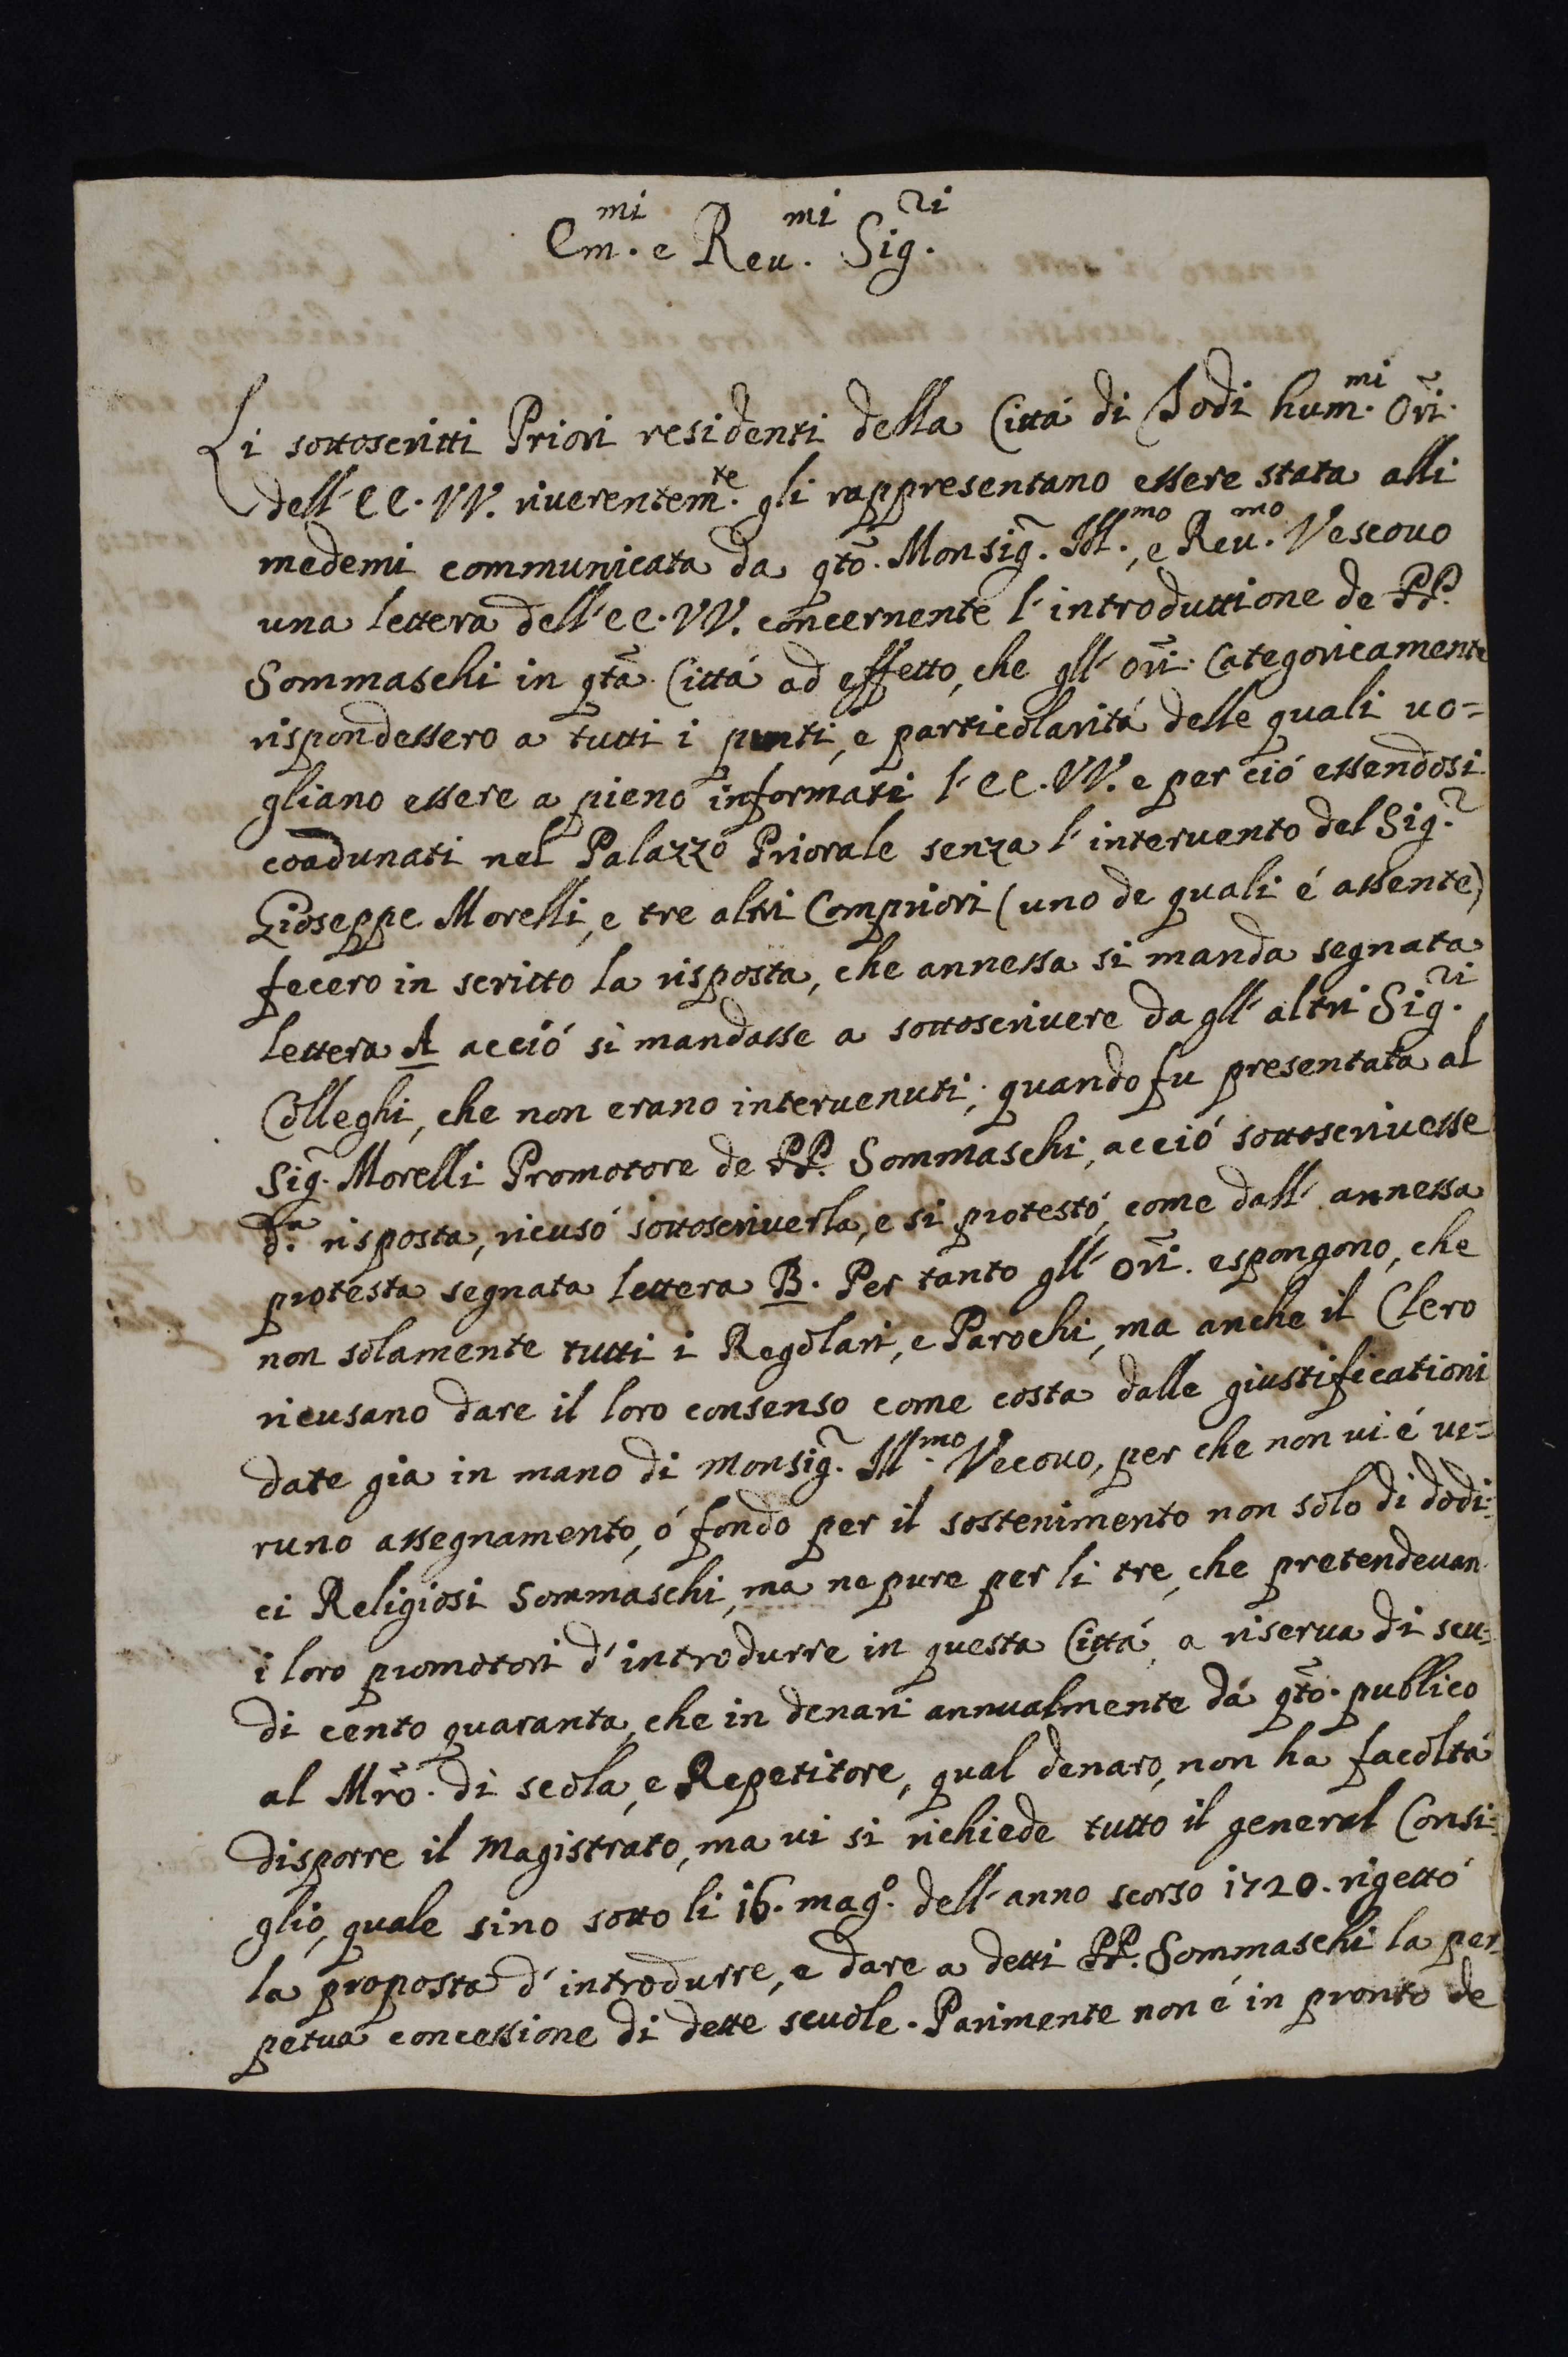 Em.mi e Reu.mi Sig.ri
Li sottoscritti Priori residenti della Cittá di Todi hum.mi Ori.
dell'EE.VV. riuerentem.te gli rappresentano essere stata alli
medemi communicata da qto. Monsig. Ill.mo, e Reu.mo Vescouo
una lettera dell'EE.VV. concernente l'introduttione de PP.
Sommaschi in qta. Cittá ad effetto, che gll' Ori. Categoricamente
rispondessero a tutti i punti, e particolaritá delle quali uo=
gliano essere a pieno informati l'EE.VV. e per ció essendosi
coadunati nel Palazzo Priorale senza l'interuento del Sig.r
Gioseppe Morelli, e tre altri Compriori (uno de quali é assente)
fecero in scritto la risposta, che annessa si manda segnata
lettera A acció si mandasse a sottoscriuere da gll' altri Sig.ri
Colleghi, che non erano interuenuti; quando fu presentata al
Sig. Morelli Promotore de PP. Sommaschi, acció sottoscriuesse
d.a risposta, ricusó sottoscriuerla, e si protestó, come dall' annessa
protesta segnata lettera B. Per tanto gll' Ori. espongono, che
non solamente tutti i Regolari, e Parochi, ma anche il Clero
ricusano dare il loro consenso come costa dalle giustificationi
date gia in mano di Monsig. Ill.mo Vecouo, per che non ui é ue=
runo assegnamento, ó fondo per il sostenimento non solo di dodi=
ci Religiosi Sommaschi, ma ne pure per li tre, che pretendeuan
i loro promotori d'introdurre in questa Cittá, a riserua di scu=
di cento quaranta, che in denari annualmente dá qto. publico
al Mro. di scola, e Repetitore, qual denaro, non ha facoltá
disporre il Magistrato, ma ui si richiede tutto il general Consi=
glio, quale sino sotto li 16. mag.o dell'anno scorso 1720. rigettó
la proposta d'introdurre, e dare a detti PP. Sommaschi la per=
petua concessione di dette scuole. Parimente non é in pronto de